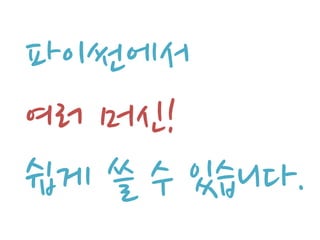 파이썬에서
여러 머신!
쉽게 쓸 수 있습니다.